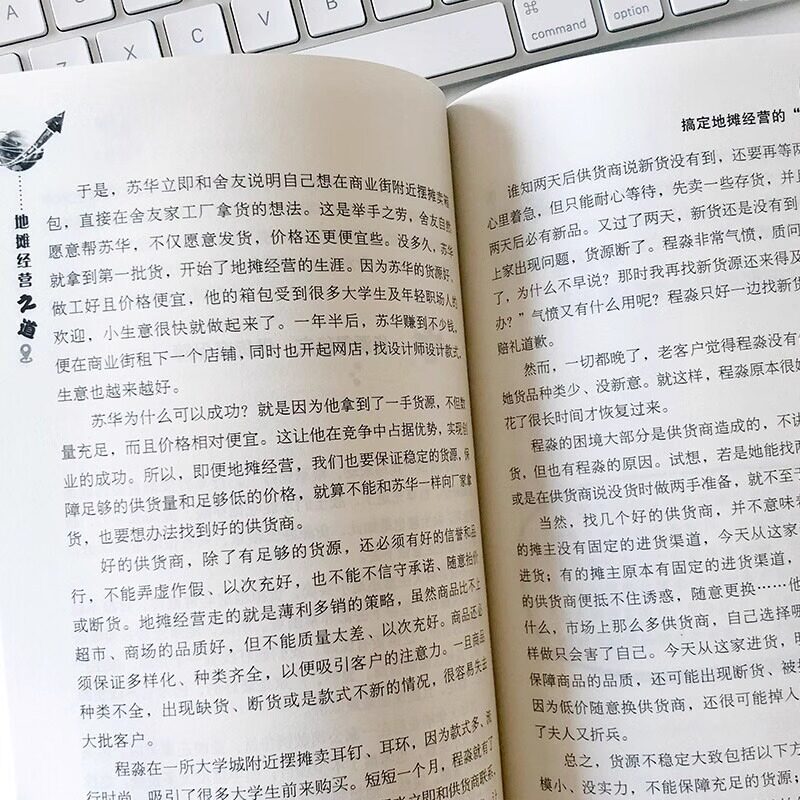 A
Z
X
C
V
command
option
地摊经营之道
于是，苏华立即和舍友说明自己想在商业街附近摆摊卖箱
包，直接在舍友家工厂拿货的想法。这是举手之劳，舍友自然
愿意帮苏华，不仅愿意发货，价格还更便宜些。没多久，苏华
就拿到第一批货，开始了地摊经营的生涯。因为苏华的货源好、
做工好且价格便宜，他的箱包受到很多大学生及年轻职场人的
欢迎，小生意很快就做起来了。一年半后，苏华赚到不少钱，
便在商业街租下一个店铺，同时也开起网店，找设计师设计款式，
生意也越来越好。
苏华为什么可以成功？就是因为他拿到了一手货源，不但数
量充足，而且价格相对便宜。这让他在竞争中占据优势，实现创
业的成功。所以，即便地摊经营，我们也要保证稳定的货源，保
障足够的供货量和足够低的价格，就算不能和苏华一样向厂家拿
货，也要想办法找到好的供货商。
好的供货商，除了有足够的货源，还必须有好的信誉和品
行，不能弄虚作假、以次充好，也不能不信守承诺、随意抬价
或断货。地摊经营走的就是薄利多销的策略，虽然商品比不上
超市、商场的品质好，但不能质量太差、以次充好。商品还必
须保证多样化、种类齐全，以便吸引客户的注意力。一旦商品
种类不全，出现缺货、断货或是款式不新的情况，很容易失去
大批客户。
程淼在一所大学城附近摆摊卖耳钉、耳环，因为款式多、流
行时尚，吸引了很多大学生前来购买。短短一个月，程淼就有了
立即和供货商联系，
搞定地摊经营的“
谁知两天后供货商说新货没有到，还要再等两
心里着急，但只能耐心等待，先卖一些存货，并且
两天后必有新品。又过了两天，新货还是没有到
上家出现问题，货源断了。程淼非常气愤，质问
了，为什么不早说？那时我再找新货源还来得及
办？”气愤又有什么用呢？程淼只好一边找新货
赔礼道歉。
然而，一切都晚了，老客户觉得程淼没有
她货品种类少、没新意。就这样，程淼原本很好
花了很长时间才恢复过来。
程淼的困境大部分是供货商造成的，不讲
货，但也有程淼的原因。试想，若是她能找两
或是在供货商说没货时做两手准备，就不至于
当然，找几个好的供货商，并不意味着
的摊主没有固定的进货渠道，今天从这家
进货；有的摊主原本有固定的进货渠道，
的供货商便抵不住诱惑，随意更换……他
什么，市场上那么多供货商，自己选择哪
样做只会害了自己。今天从这家进货，明
保障商品的品质，还可能出现断货、被
因为低价随意换供货商，还很可能掉入
了夫人又折兵。
总之，货源不稳定大致包括以下方
模小、没实力，不能保障充足的货源；